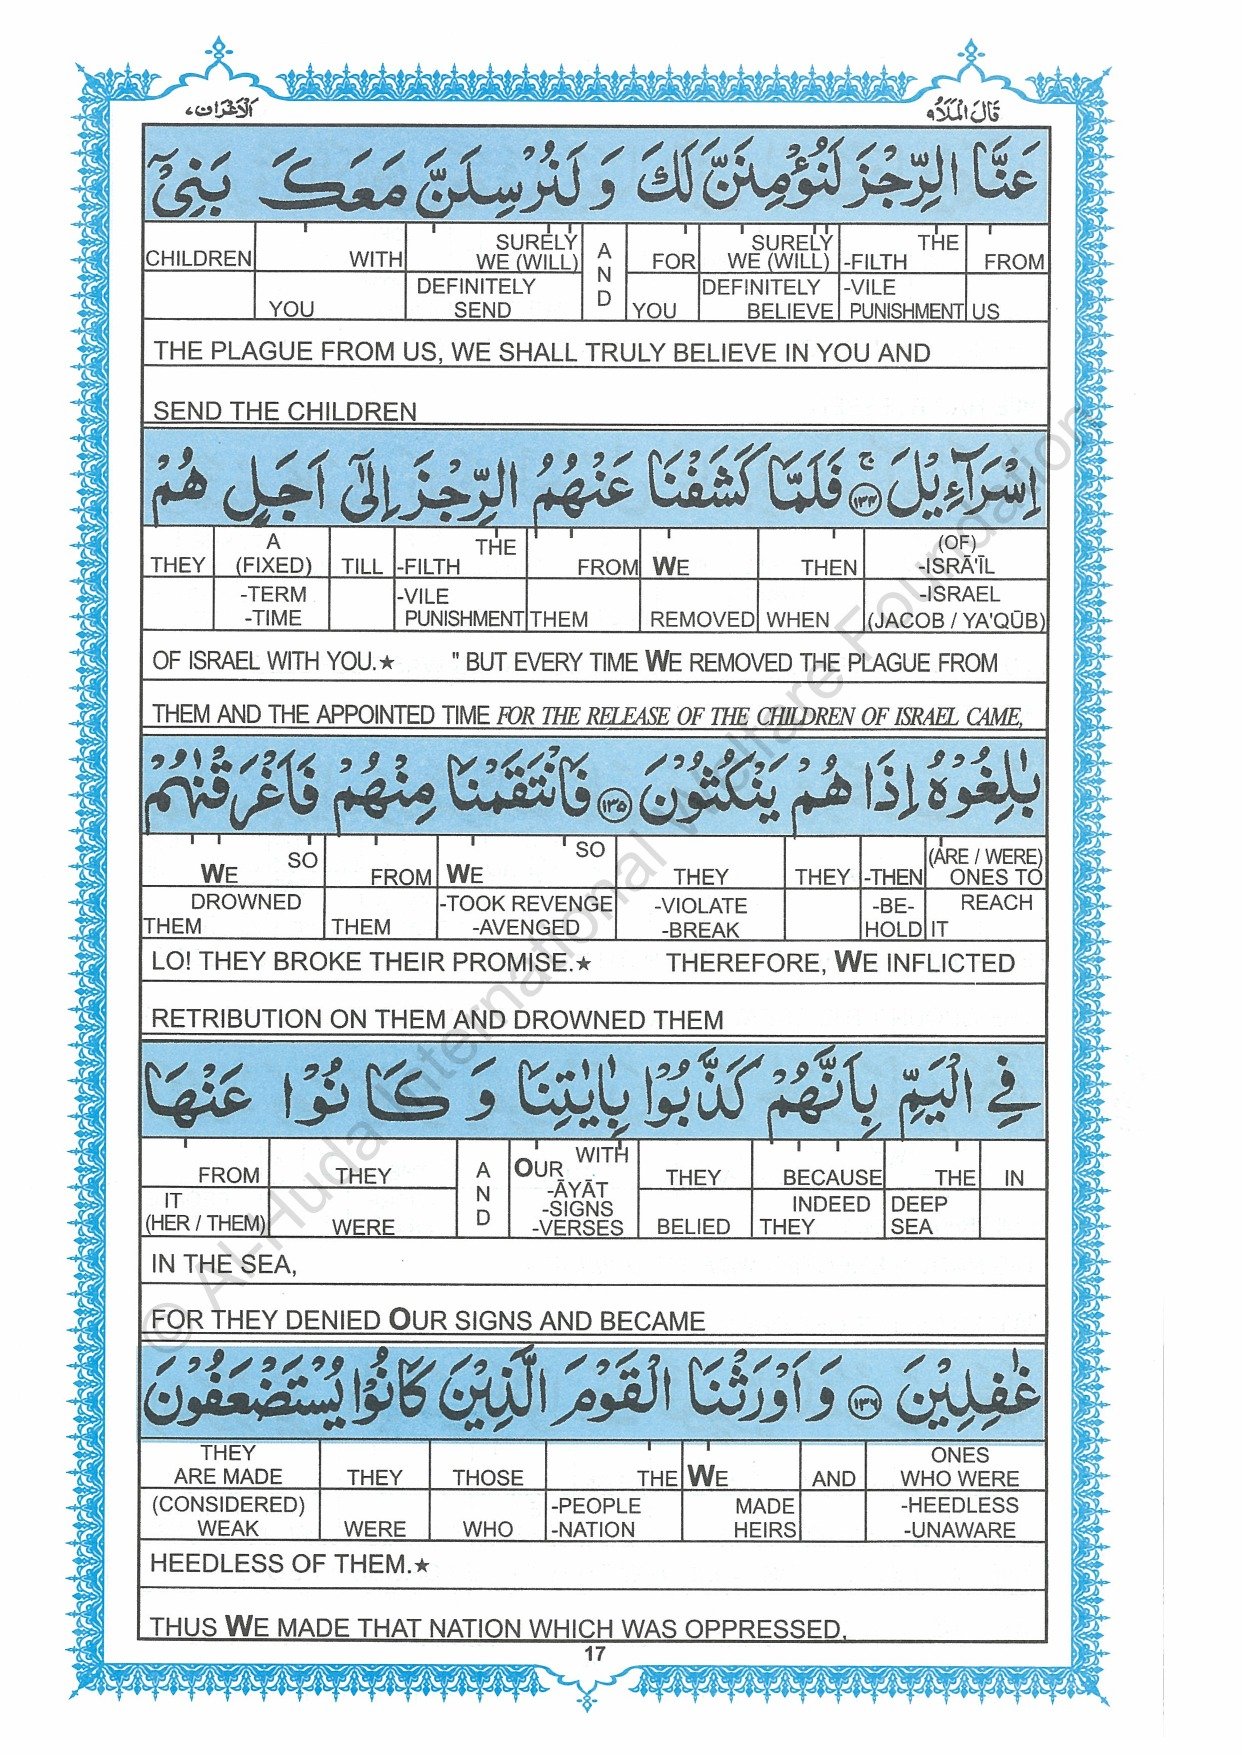 قَالَ الْمَلَاُ ۹ الْاَعْرَاف ۷
عَنَّا الرِّجْزَ لَنُؤْمِنَنَّ لَكَ وَ لَنُرْسِلَنَّ مَعَكَ بَنِيْٓ
CHILDREN WITH SURELY WE (WILL) AND FOR SURELY WE (WILL) THE -FILTH FROM
YOU DEFINITELY SEND YOU DEFINITELY BELIEVE -VILE PUNISHMENT US
THE PLAGUE FROM US, WE SHALL TRULY BELIEVE IN YOU AND
SEND THE CHILDREN
اِسْرَآءِيْلَ ۚ ۱۳۴ فَلَمَّا كَشَفْنَا عَنْهُمُ الرِّجْزَ اِلٰٓى اَجَلٍ هُمْ
THEY A (FIXED) TILL THE -FILTH FROM WE THEN (OF) -ISRĀ'ĪL
-TERM -TIME -VILE PUNISHMENT THEM REMOVED WHEN -ISRAEL (JACOB / YA'QŪB)
OF ISRAEL WITH YOU.★ " BUT EVERY TIME WE REMOVED THE PLAGUE FROM
THEM AND THE APPOINTED TIME FOR THE RELEASE OF THE CHILDREN OF ISRAEL CAME,
بٰلِغُوْهُ اِذَا هُمْ يَنْكُثُوْنَ ۱۳۵ فَانْتَقَمْنَا مِنْهُمْ فَاَغْرَقْنٰهُمْ
SO WE FROM SO WE THEY THEY -THEN (ARE / WERE) ONES TO
DROWNED THEM THEM -TOOK REVENGE -AVENGED -VIOLATE -BREAK -BE-HOLD REACH IT
LO! THEY BROKE THEIR PROMISE.★ THEREFORE, WE INFLICTED
RETRIBUTION ON THEM AND DROWNED THEM
فِي الْيَمِّ بِاَنَّهُمْ كَذَّبُوْا بِاٰيٰتِنَا وَ كَانُوْا عَنْهَا
FROM THEY AND WITH OUR -ĀYĀT -SIGNS -VERSES THEY BECAUSE THE IN
IT (HER / THEM) WERE BELIED INDEED THEY DEEP SEA
IN THE SEA,
FOR THEY DENIED OUR SIGNS AND BECAME
غٰفِلِيْنَ ۱۳۶ وَ اَوْرَثْنَا الْقَوْمَ الَّذِيْنَ كَانُوْا يُسْتَضْعَفُوْنَ
THEY ARE MADE THEY THOSE THE WE AND ONES WHO WERE
(CONSIDERED) WEAK WERE WHO -PEOPLE -NATION MADE HEIRS -HEEDLESS -UNAWARE
HEEDLESS OF THEM.★
THUS WE MADE THAT NATION WHICH WAS OPPRESSED,
17
© Al-Huda International Welfare Foundation